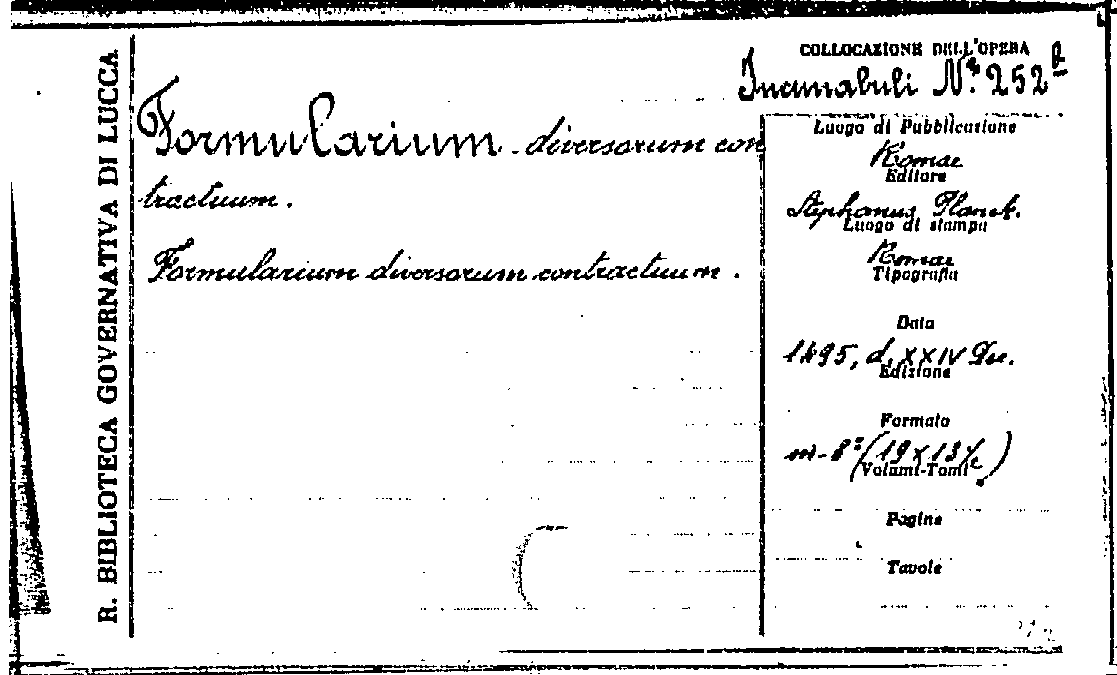 R. BIBLIOTECA GOVERNATIVA DI LUCCA
Formularium diversorum con
tractuum.
Formularium diversorum contractuum.
COLLOCAZIONE DELL'OPERA
Incunabuli N.º 252 b
Luogo di Pubblicazione
Romae
Editore
Stephanus Planck.
Luogo di stampa
Romae
Tipografia
Data
1495, d. XXIV Dec.
Edizione
Formato
in-8º (19 x 13 c)
Volumi-Tomi
Pagine
Tavole